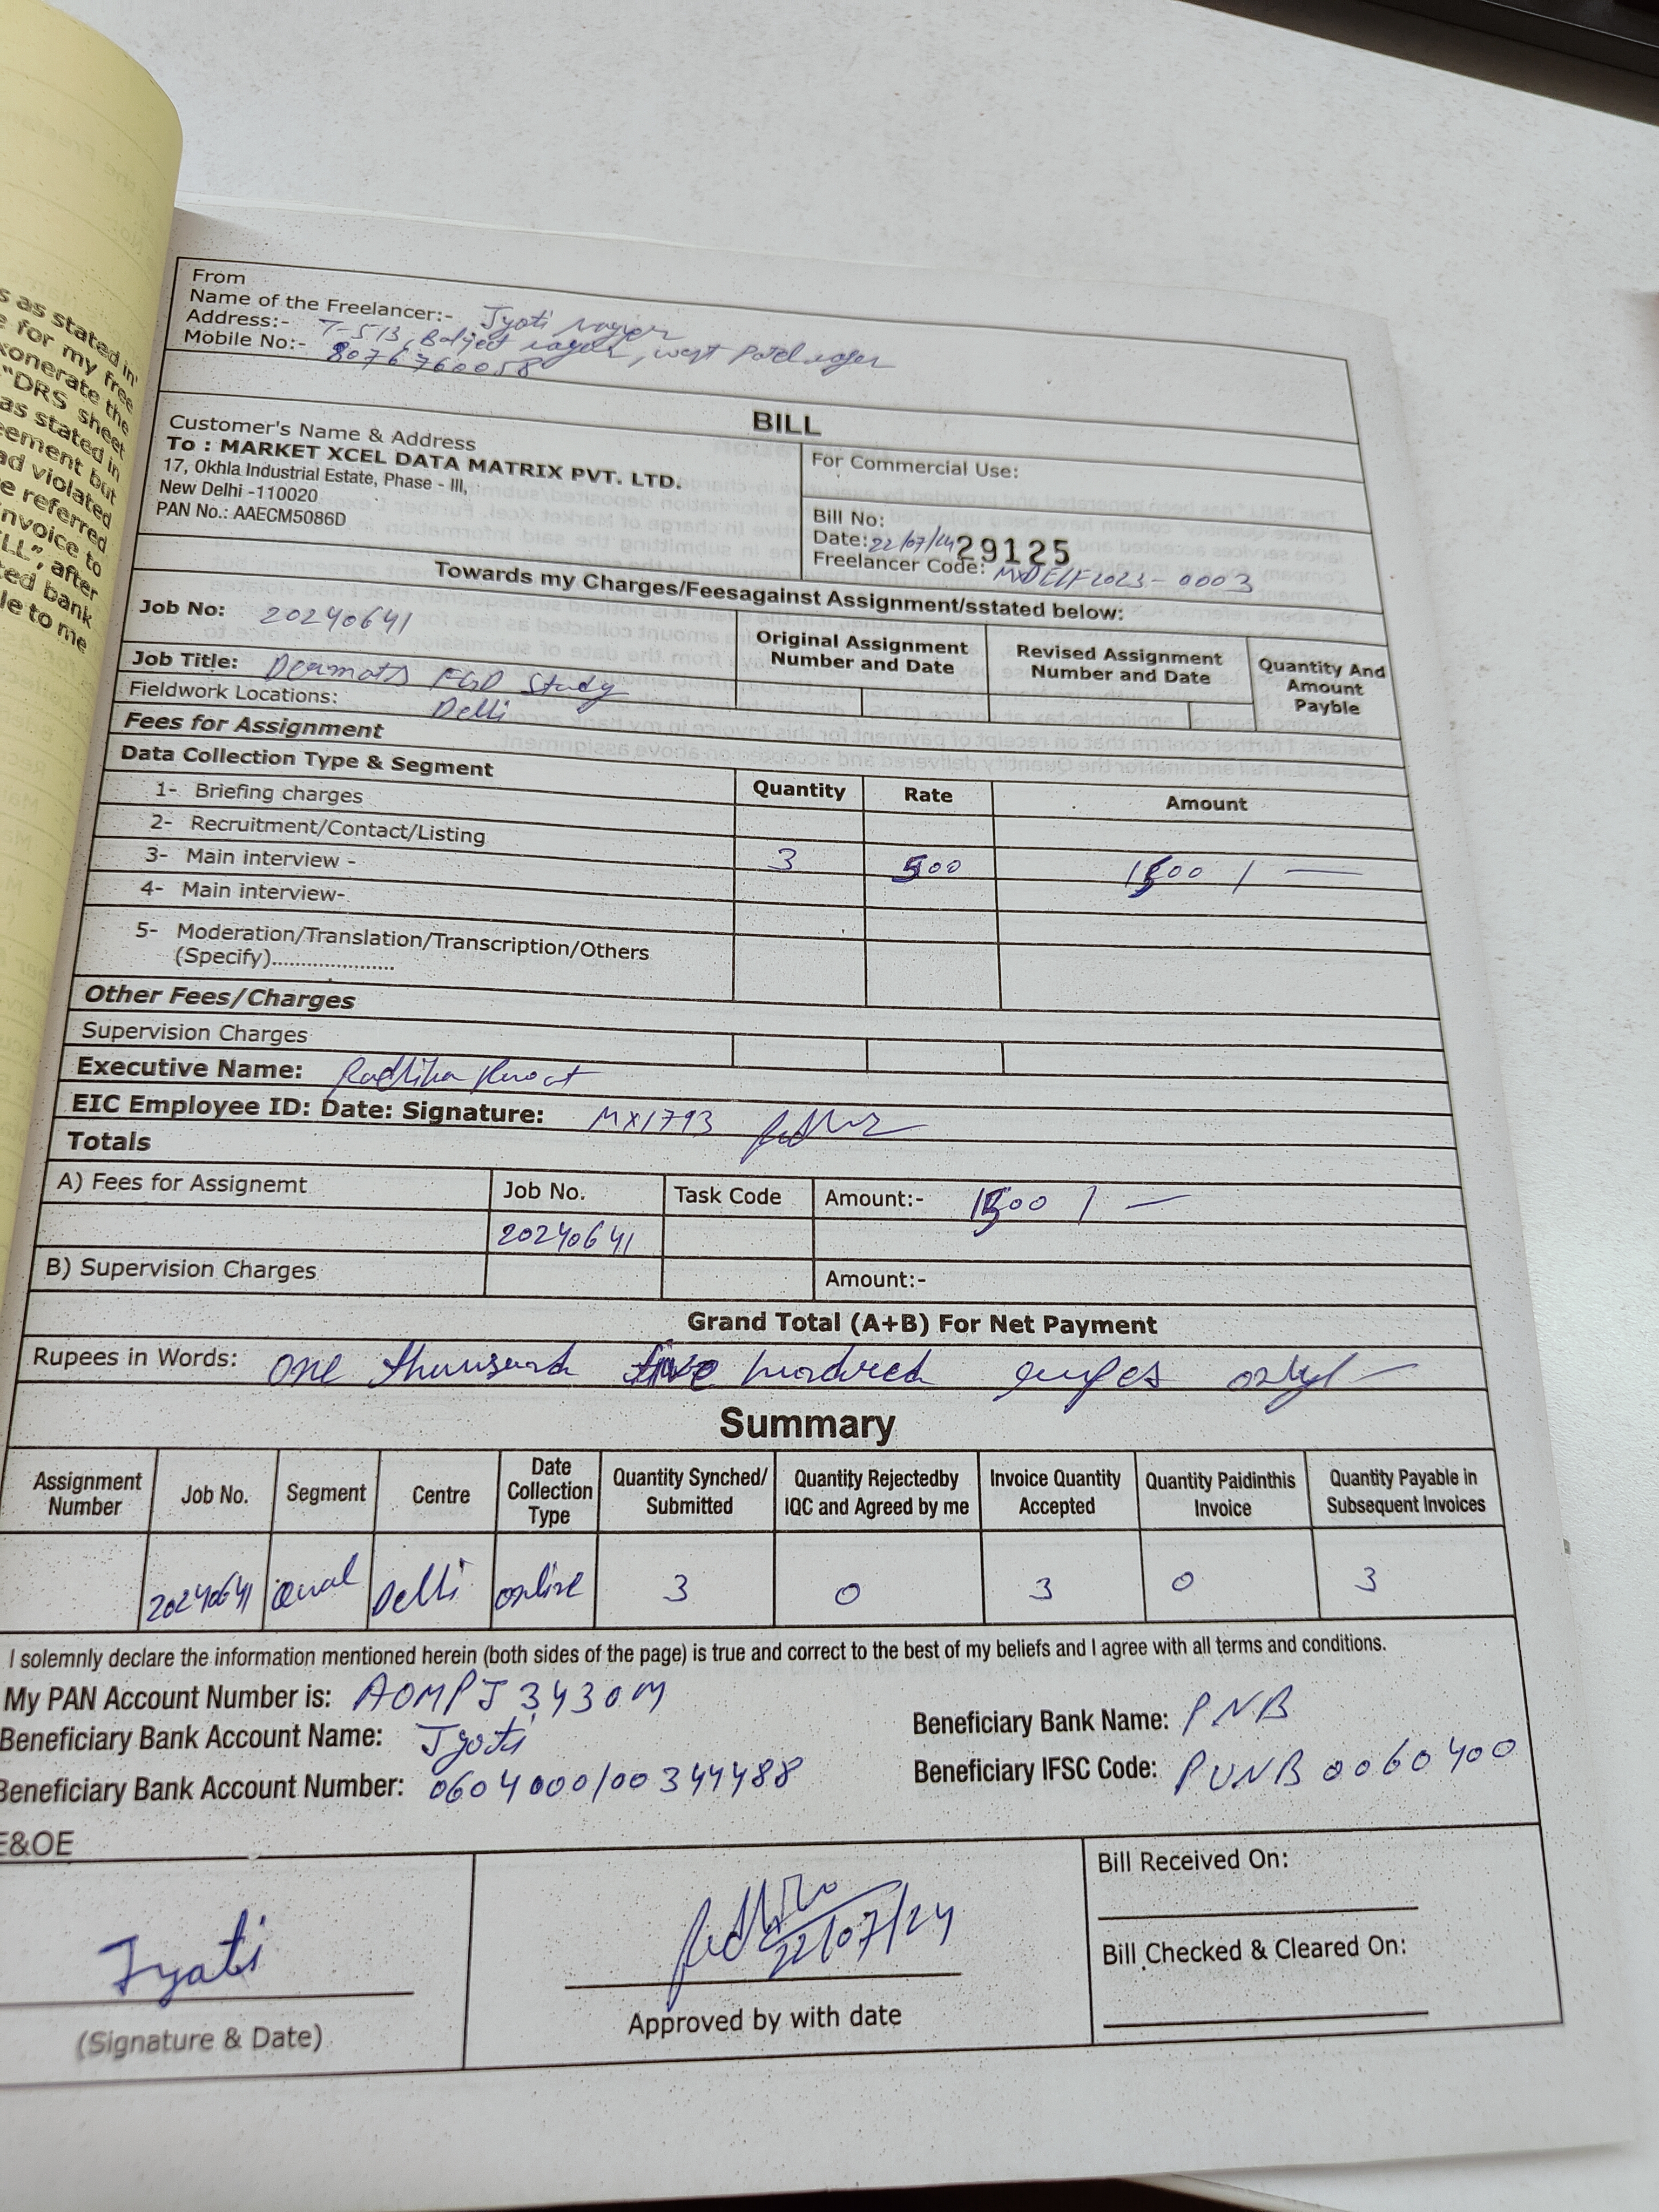 s as stated in
e for my free
xonerate the
"DRS sheet
as stated in
eement but
ad violated
e referred
nvoice to
LL", after
ted bank
le to me
From
Name of the Freelancer:- Jyoti
Address:- T-513, Baljeet nagar, west Patel nagar
Mobile No:- 8076760058
BILL
Customer's Name & Address
To : MARKET XCEL DATA MATRIX PVT. LTD.
17, Okhla Industrial Estate, Phase - III,
New Delhi -110020
PAN No.: AAECM5086D
For Commercial Use:
Bill No:
Date: 22/07/24 29125
Freelancer Code: MXDELF2023-0003
Towards my Charges/Feesagainst Assignment/sstated below:
Job No: 20240641
Original Assignment Number and Date
Revised Assignment Number and Date
Quantity And Amount Payble
Job Title: Dermats FGD Study
Fieldwork Locations: Delhi
Fees for Assignment
Data Collection Type & Segment
Quantity Rate Amount
1- Briefing charges
2- Recruitment/Contact/Listing
3- Main interview - 3 500 1500 / —
4- Main interview-
5- Moderation/Translation/Transcription/Others
(Specify).....................
Other Fees/Charges
Supervision Charges
Executive Name: Radhika
EIC Employee ID: Date: Signature: MX1793
Totals
A) Fees for Assignemt Job No. Task Code Amount:- 1500 / —
20240641
B) Supervision Charges Amount:-
Grand Total (A+B) For Net Payment
Rupees in Words: one thousand five hundred rupees only/-
Summary
Assignment Number Job No. Segment Centre Date Collection Type Quantity Synched/ Submitted Quantity Rejectedby IQC and Agreed by me Invoice Quantity Accepted Quantity Paidinthis Invoice Quantity Payable in Subsequent Invoices
20240641 Qual Delhi online 3 0 3 0 3
I solemnly declare the information mentioned herein (both sides of the page) is true and correct to the best of my beliefs and I agree with all terms and conditions.
My PAN Account Number is: AOMPJ3430M
Beneficiary Bank Name: PNB
Beneficiary Bank Account Name: Jyoti
Beneficiary IFSC Code: PUNB0060400
Beneficiary Bank Account Number: 0604000100344488
E&OE
Jyoti
(Signature & Date)
22/07/24
Approved by with date
Bill Received On:
Bill Checked & Cleared On: